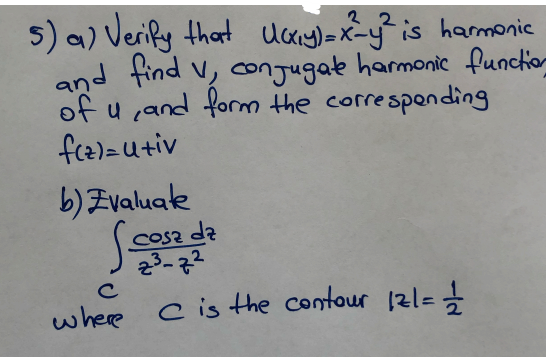 5) a) Verify that u(x,y)=x²-y² is harmonic
and find v, conjugate harmonic function
of u, and form the corresponding
f(z)=u+iv
b) Evaluate
∫_C cosz dz / (z³-z²)
where C is the contour |z|=1/2